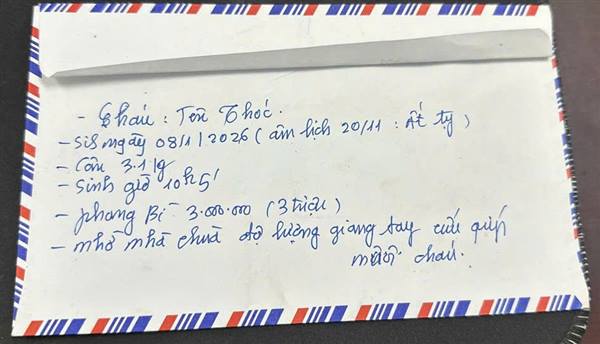 - Cháu : Tên Thóc.
- SN ngày 08/1/2026 (âm lịch 20/11 : Ất tỵ)
- Cân 3.1kg
- Sinh giờ 10h5'
- phong Bì 3.000.000 (3 triệu)
- nhờ nhà chùa độ lượng giang tay cứu giúp
cháu.